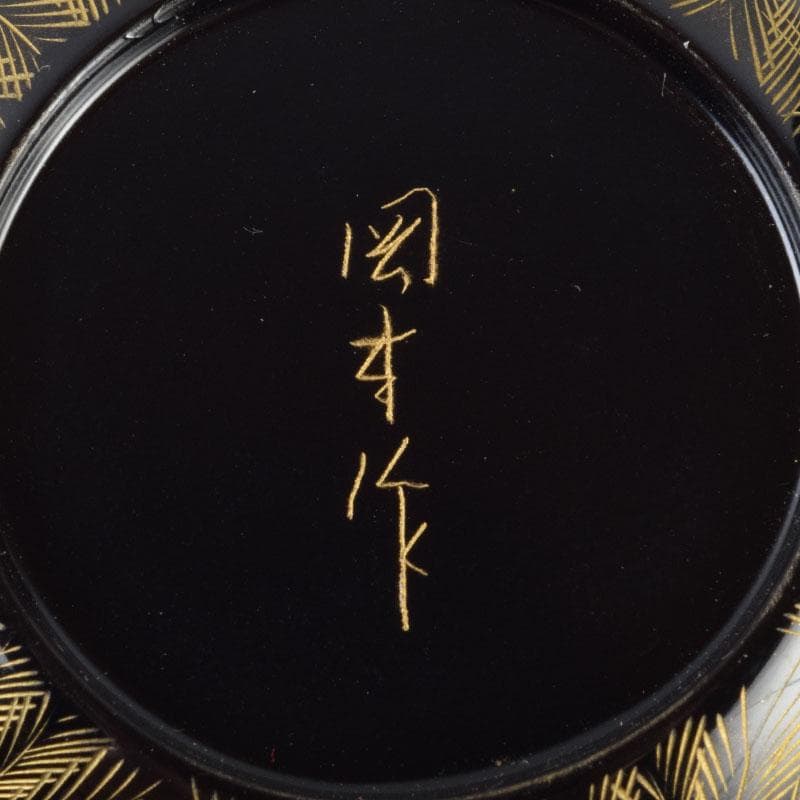 岡本作